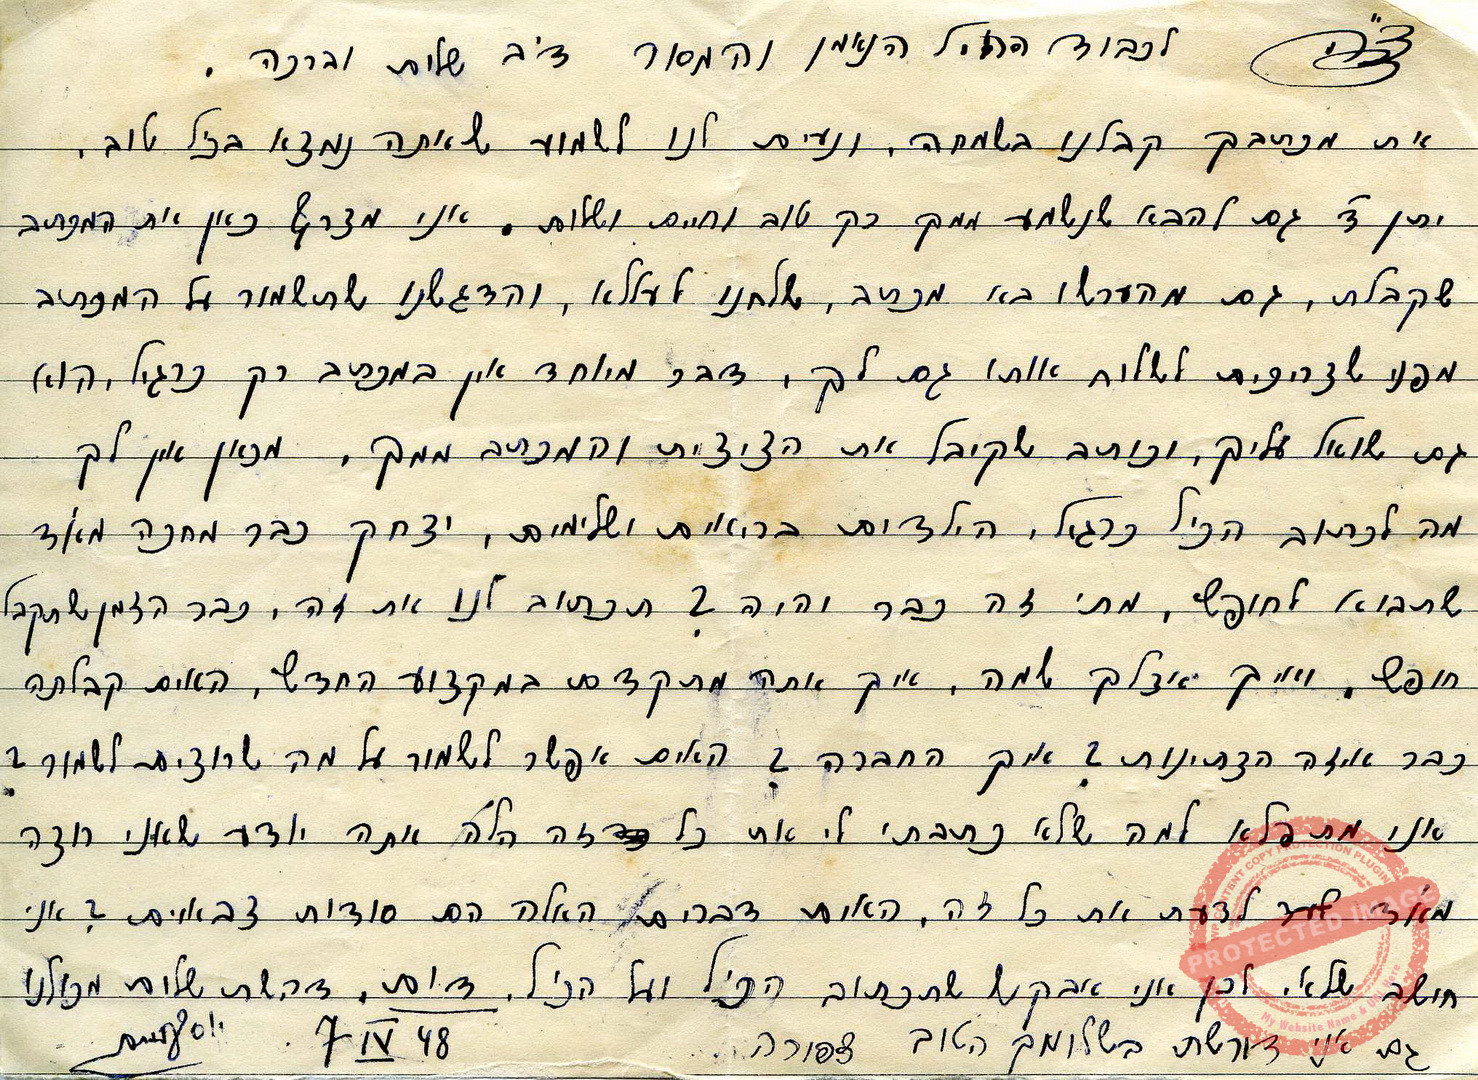 ב"ה
לכבוד החיל הנאמן והמסור ד'ב שלום וברכה.
את מכתבך קבלנו בשמחה, ונעים לנו לשמוע שאתה נמצא בכל טוב,
יתן ד' גם להבא שנשמע ממך רק טוב וחיים ושלום. אני מצרף כאן את המכתב
שקבלת, גם מהערשו בא מכתב, שלחנו לעלא, והדגשנו שתשמור על המכתב
מפני שצריכים לשלוח אותו גם לך, דבר מיוחד אין במכתב רק כרגיל, הוא
גם שואל עליך, וכותב שקיבל את הציצית והמכתב ממך, מכאן אין לך
מה לכתוב הכל כרגיל, הילדים בריאים ושלימים, יצחק כבר מחכה מאד
שתבוא לחופש, מתי זה כבר יהיה? תכתוב לנו את זה, כבר הזמן שתקבל
חופש, ואיך אצלך שמה, איך אתה מתקדם במקצוע החדש, האים קבלתה
כבר איזה הצתינות? איך החברה? האים אפשר לשמור על מה שרוצים לשמור?
אני מתפלא למה שלא כתבתי לי את כל זה הלא אתה יודע שאני רוצה
מאד לדעת את כל זה, האים דברים האלה הם סודות צבאיים? אני
חושב שלא, לכן אני אבקש שתכתוב הכל ועל הכל. ד"ש, דרשת שלום מכולנו
גם אני דורשת בשלומך הטוב צפורה
7 IV 48
PATENT COPY PROTECTION PLUGIN
PROTECTED IMAGE
My Website Name &